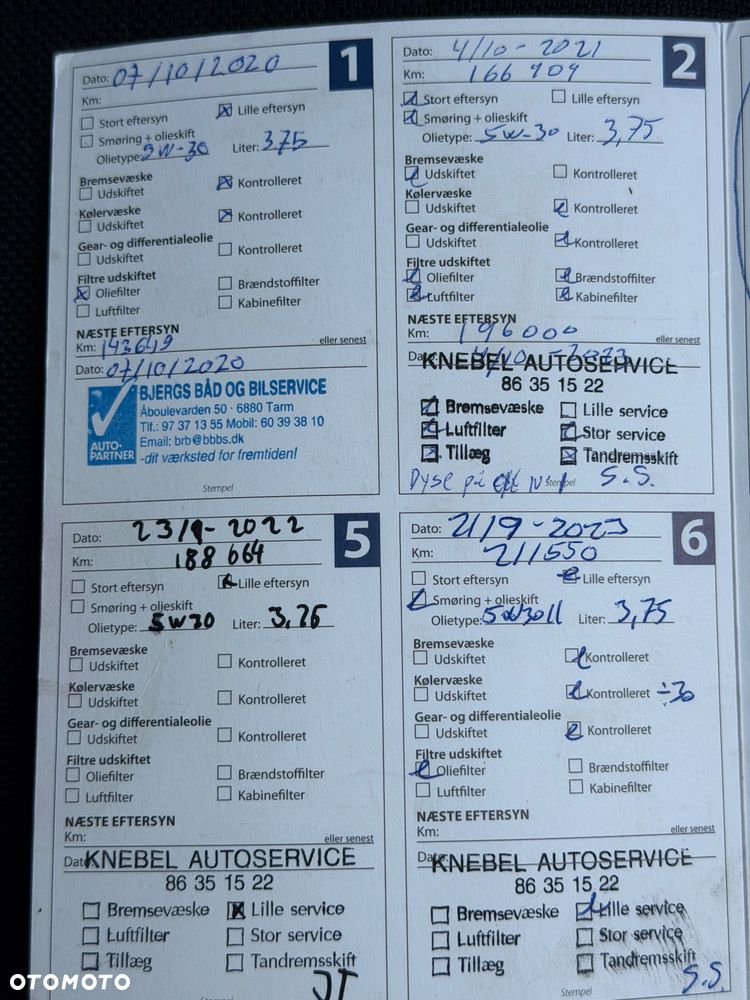 1
Dato: 07/10/2020
Km:
Stort eftersyn Lille eftersyn
Smøring + olieskift
Olietype: 5W-30 Liter: 3,75
Bremsevæske
Udskiftet Kontrolleret
Kølervæske
Udskiftet Kontrolleret
Gear- og differentialeolie
Udskiftet Kontrolleret
Filtre udskiftet
Oliefilter Brændstoffilter
Luftfilter Kabinefilter
NÆSTE EFTERSYN
Km: 143649 eller senest
Dato: 07/10/2020
BJERGS BÅD OG BILSERVICE
Åboulevarden 50 · 6880 Tarm
Tlf.: 97 37 13 55 Mobil: 60 39 38 10
Email: brb@bbbs.dk
-dit værksted for fremtiden!
AUTO-
PARTNER
Stempel
2
Dato: 4/10-2021
Km: 166 909
Stort eftersyn Lille eftersyn
Smøring + olieskift
Olietype: 5W-30 Liter: 3,75
Bremsevæske
Udskiftet Kontrolleret
Kølervæske
Udskiftet Kontrolleret
Gear- og differentialeolie
Udskiftet Kontrolleret
Filtre udskiftet
Oliefilter Brændstoffilter
Luftfilter Kabinefilter
NÆSTE EFTERSYN
Km: 196000 eller senest
Dato:
KNEBEL AUTOSERVICE
86 35 15 22
Bremsevæske Lille service
Luftfilter Stor service
Tillæg Tandremsskift
Dyse på S.S.
Stempel
5
Dato: 23/9-2022
Km: 188 664
Stort eftersyn Lille eftersyn
Smøring + olieskift
Olietype: 5W30 Liter: 3,75
Bremsevæske
Udskiftet Kontrolleret
Kølervæske
Udskiftet Kontrolleret
Gear- og differentialeolie
Udskiftet Kontrolleret
Filtre udskiftet
Oliefilter Brændstoffilter
Luftfilter Kabinefilter
NÆSTE EFTERSYN
Km: eller senest
Dato:
KNEBEL AUTOSERVICE
86 35 15 22
Bremsevæske Lille service
Luftfilter Stor service
Tillæg Tandremsskift
Stempel JT
6
Dato: 21/9-2023
Km: 211550
Stort eftersyn Lille eftersyn
Smøring + olieskift
Olietype: Liter: 3,75
Bremsevæske
Udskiftet Kontrolleret
Kølervæske
Udskiftet Kontrolleret ÷30
Gear- og differentialeolie
Udskiftet Kontrolleret
Filtre udskiftet
Oliefilter Brændstoffilter
Luftfilter Kabinefilter
NÆSTE EFTERSYN
Km: eller senest
Dato:
KNEBEL AUTOSERVICE
86 35 15 22
Bremsevæske Lille service
Luftfilter Stor service
Tillæg Tandremsskift
Stempel S.S.
OTOMOTO